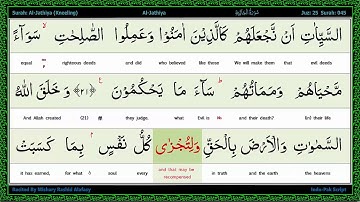 Surah: Al-Jathiya (Kneeling) Al-Jathiya سُورَةُ الجَاثِيَة Juz: 25 Surah: 045
السَّيِّاٰتِ اَنْ نَّجْعَلَهُمْ كَالَّذِيْنَ اٰمَنُوْا وَعَمِلُوا الصّٰلِحٰتِ ۙ سَوَآءً
equal righteous deeds and did who believed like those We will make them that evil deeds
مَّحْيَاهُمْ وَمَمَاتُهُمْ ؕ سَآءَ مَا يَحْكُمُوْنَ ﴿٢١﴾ وَخَلَقَ اللّٰهُ
And Allah created (21) they judge. what Evil is and their death? (in) their life
السَّمٰوٰتِ وَالْاَرْضَ بِالْحَقِّ وَلِتُجْزٰى كُلُّ نَفْسٍۭ بِمَا كَسَبَتْ
it has earned, for what soul every and that may be recompensed in truth and the earth the heavens
Recited By Mishary Rashid Alafasy Indo-Pak Script